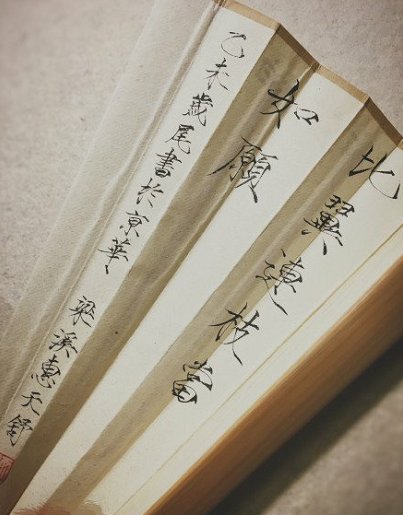 比翼連枝當
如願
乙未歲尾書於京華
梁 惠天舒